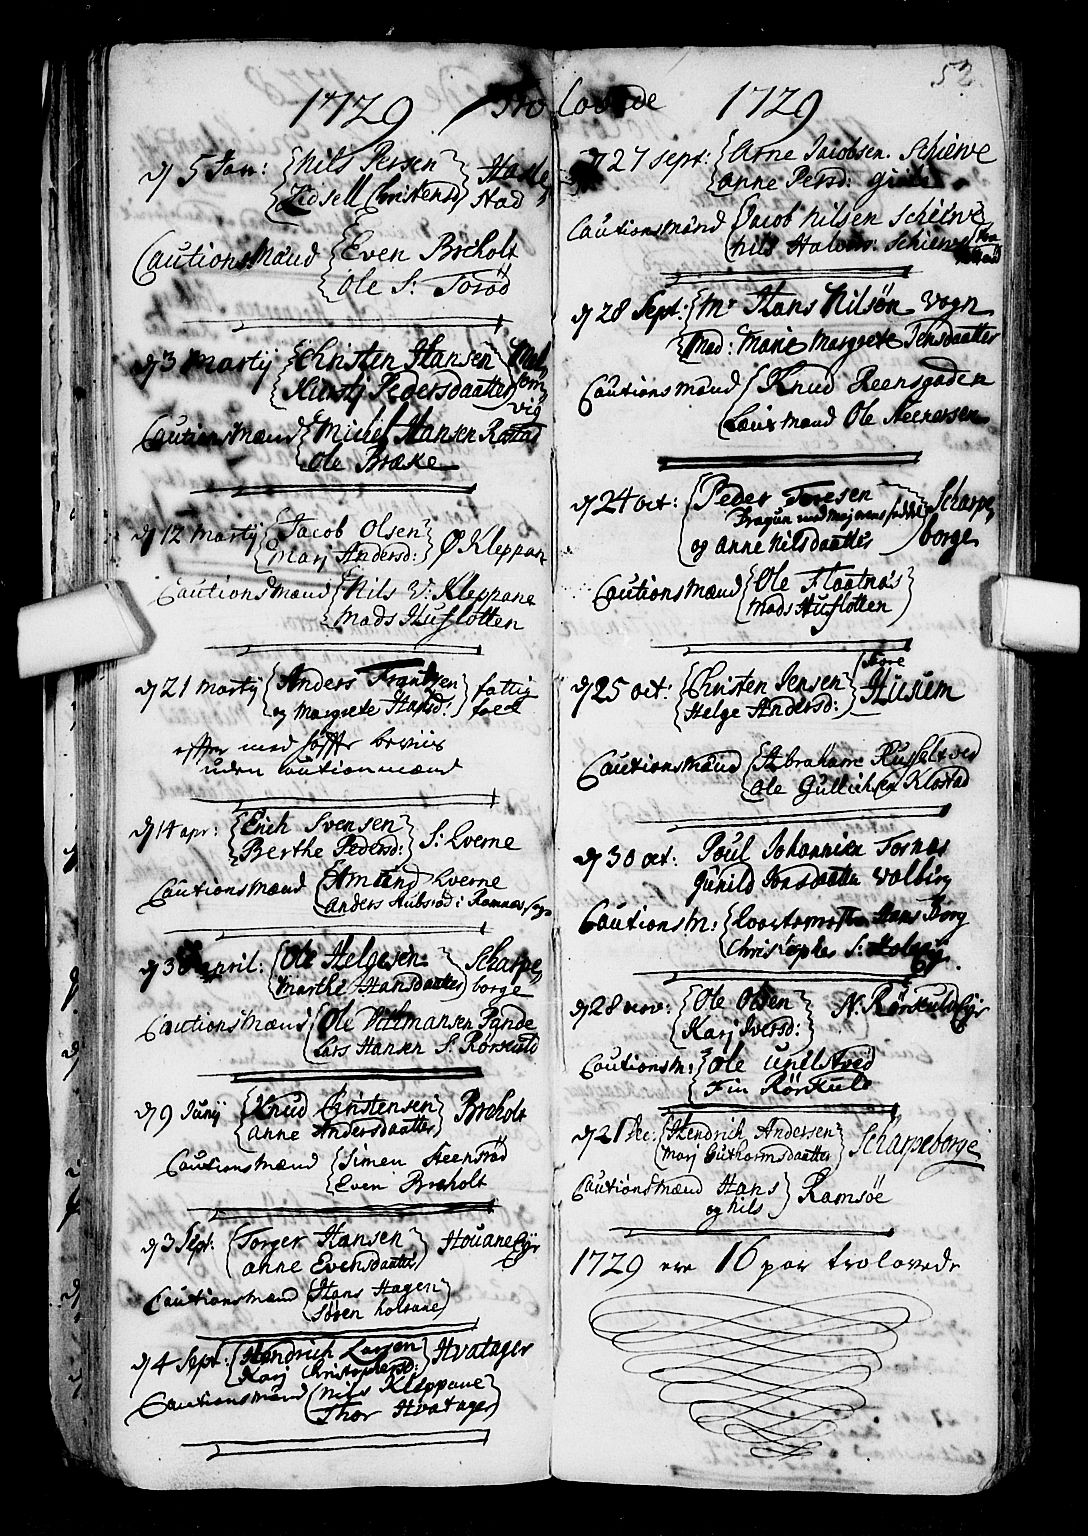 52.
1729 Trolovede 1729
d 5 Jan: Nils Persen
Zidsell Christensd Hasle Stad
Cautions Mænd Even Breholt
Ole S: Torød
d 3 Martij Christen Hansen
Kirstj Pedersdaatter
Cautions Mænd Michel Hansen Rastad
Ole Bræke
d 12 Martij Jacob Olsen
Marj Andersd: Ø Kleppan
Cautions Mænd Nils V: Kleppane
Mads Huslotten
d 21 Martij Anders Frantzen
og Margrete Hansd: fattig
efter med
uden Cautionmænd
d 14 apr: Erich Svensen
Berthe Pedersd: S: Kverne
Cautions Mænd Amund Kverne
Anders Stubsrød: Ramnæs Sogn
d 30 april: Ole Helgesen
Marthe Hansdaatter Scharpeborge
Cautions Mænd Ole Dittmansen Rande
Lars Hansen S: Rørkuld
d 9 Junij Knud Christensen
Anne Andersdaatter Breholt
Cautions Mænd Simen Steensrød
Even Breholt
d 3 Sept: Torger Hansen
anne Evensdaatter Houane Eyr
Cautions Mænd Hans Hagen
Søren holvane
d 4 Sept: Hendrich Larsen
Karj Christophersd: Hvatager
Cautions Mænd Nils Kleppane
Thor Hvatager
d 27 Sept: Arne Jacobsen Schierve
anne Persd:
Cautions Mænd Jacob Nilsen Schierve
Nils Halvors: Schierve
d 28 Sept: Mr Hans Nilsøn Vogn
Mad: Marie Margrete Jensdaatter
Cautions Mænd Knud Reensgaden
Ole Steenersen
d 24 oct: Peder Toresen
Dragun
og Anne Nilsdaatter Scharpeborge
Cautions Mænd Ole Flaatnæs
Mads Huslotten
d 25 oct: Christen Jensen
Helge Andersd: Store Husum
Cautions Mænd Abraham
Ole Gullichsen Klostad
d 30 oct: Poul Johannisen Tornæs
Gunild Jonsdaatter Valbirg
Cautions M: Hans Borg
Christopher S: Holmen
d 28 nov: Ole Olsen
Karj Iversd: N. Rørkuld Eyr
Cautions M: Ole Undelstved
Fin Rørkuld
d 21 Dec: Hendrich Andersen
Marj Guthormsdaatter Scharpeborge
Cautions Mænd Hans
og Nils Ramsøe
1729 ere 16 par trolovede